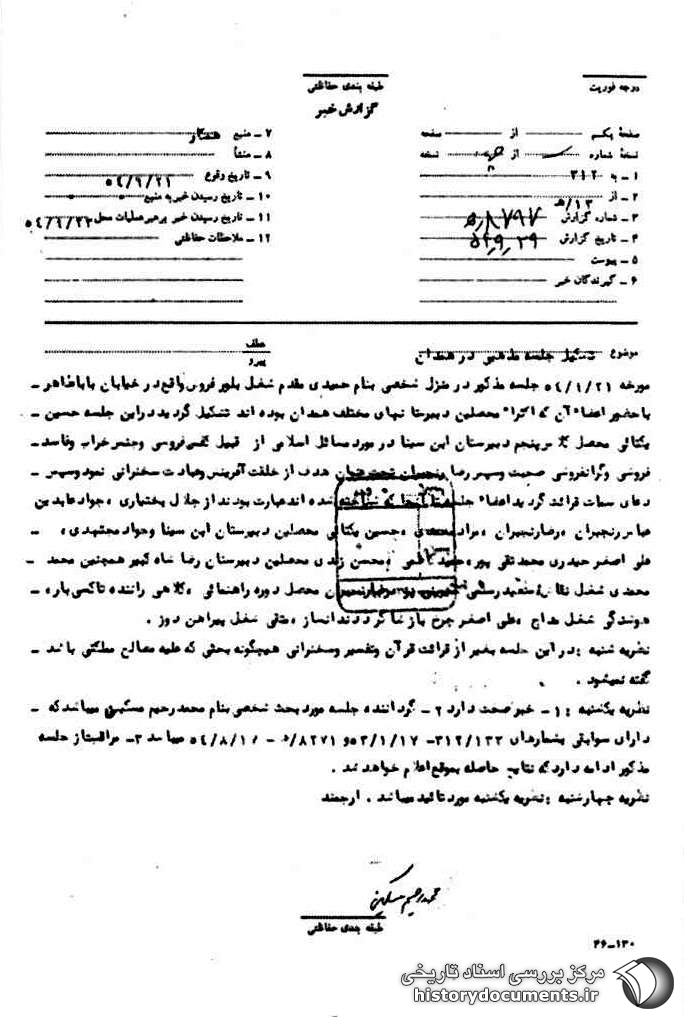 درجه فوریت
طبقه بندی حفاظتی
گزارش خبر
صفحهٔ یکم از صفحه
نسخهٔ شماره از نسخه
۱ ـ به ۳۱۲
۲ ـ از ۱۳/ه
۳ ـ شماره گزارش ۸۷۹۷/ه
۴ ـ تاریخ گزارش
۵ ـ پیوست
۶ ـ گیرندگان خبر
۷ ـ منبع
۸ ـ منشأ
۹ ـ تاریخ وقوع
۱۰ ـ تاریخ رسیدن خبر به منبع
۱۱ ـ تاریخ رسیدن خبر برهبر عملیات محل
۱۲ ـ ملاحظات حفاظتی
موضوع تشکیل جلسه مذهبی در همدان
عطف
پیرو
مورخه جلسه مذکور در منزل شخصی بنام حمیدی مقدم شغل بلور فروش واقع در خیابان باباطاهر ـ
با حضور اعضاء آن که اکثرا" محصلین دبیرستانهای مختلف همدان بوده اند تشکیل گردید در این جلسه حسین ـ
یکتائی محصل کلاس پنجم دبیرستان ابن سینا در مورد مسائل اسلامی از قبیل کم فروشی و جنس خراب و فاسد ـ
فروشی و گرانفروشی صحبت و سپس رضا رنجبران تحت عنوان هدف از خلقت آفرینش و عبادت سخنرانی نمود و سپس ـ
دعای سمات قرائت گردید اعضاء جلسه تا آنجا که شناخته شده اند عبارت بودند از جلال بختیاری ، جواد عابدین
عباس رنجبران ، رضا رنجبران ، مراد محمدی ، حسین یکتائی محصلین دبیرستان ابن سینا و جواد مجتهدی ، ـ
علی اصغر حیدری محمد تقی پور ، حمید کاظمی ، محسن زندی محصلین دبیرستان رضا شاه کبیر همچنین محمد ـ
محمدی شغل نقاش محصل دوره راهنمائی ، کلاهی راننده تاکسی بار ، ـ
شغل حلاج ، علی اصغر چرخ باز شاگرد دندانساز ، متقی شغل پیراهن دوز .
نظریه شنبه : در این جلسه بغیر از قرائت قرآن و تفسیر و سخنرانی هیچگونه بحثی که علیه مصالح مملکتی باشد ـ
گفته نمیشود .
نظریه یکشنبه : ۱ـ خبر صحت دارد ۲ـ گرداننده جلسه مورد بحث شخصی بنام محمد رحیم مسکین میباشد که ـ
دارای سوابقی بشمارهای ۳۱۲/۱۳۲ـ ۵۳/۱/۱۷ و ۸۲۷۱/ه ـ ۵۴/۸/۱۰ میباشد ۳ـ مراقبت از جلسه
مذکور ادامه دارد که نتایج حاصله بموقع اعلام خواهد شد .
نظریه چهارشنبه : نظریه یکشنبه مورد تائید میباشد . ارجمند
محمد رحیم مسکین
طبقه بندی حفاظتی
۴۶ـ۱۳۰
مرکز بررسی اسناد تاریخی
historydocuments.ir